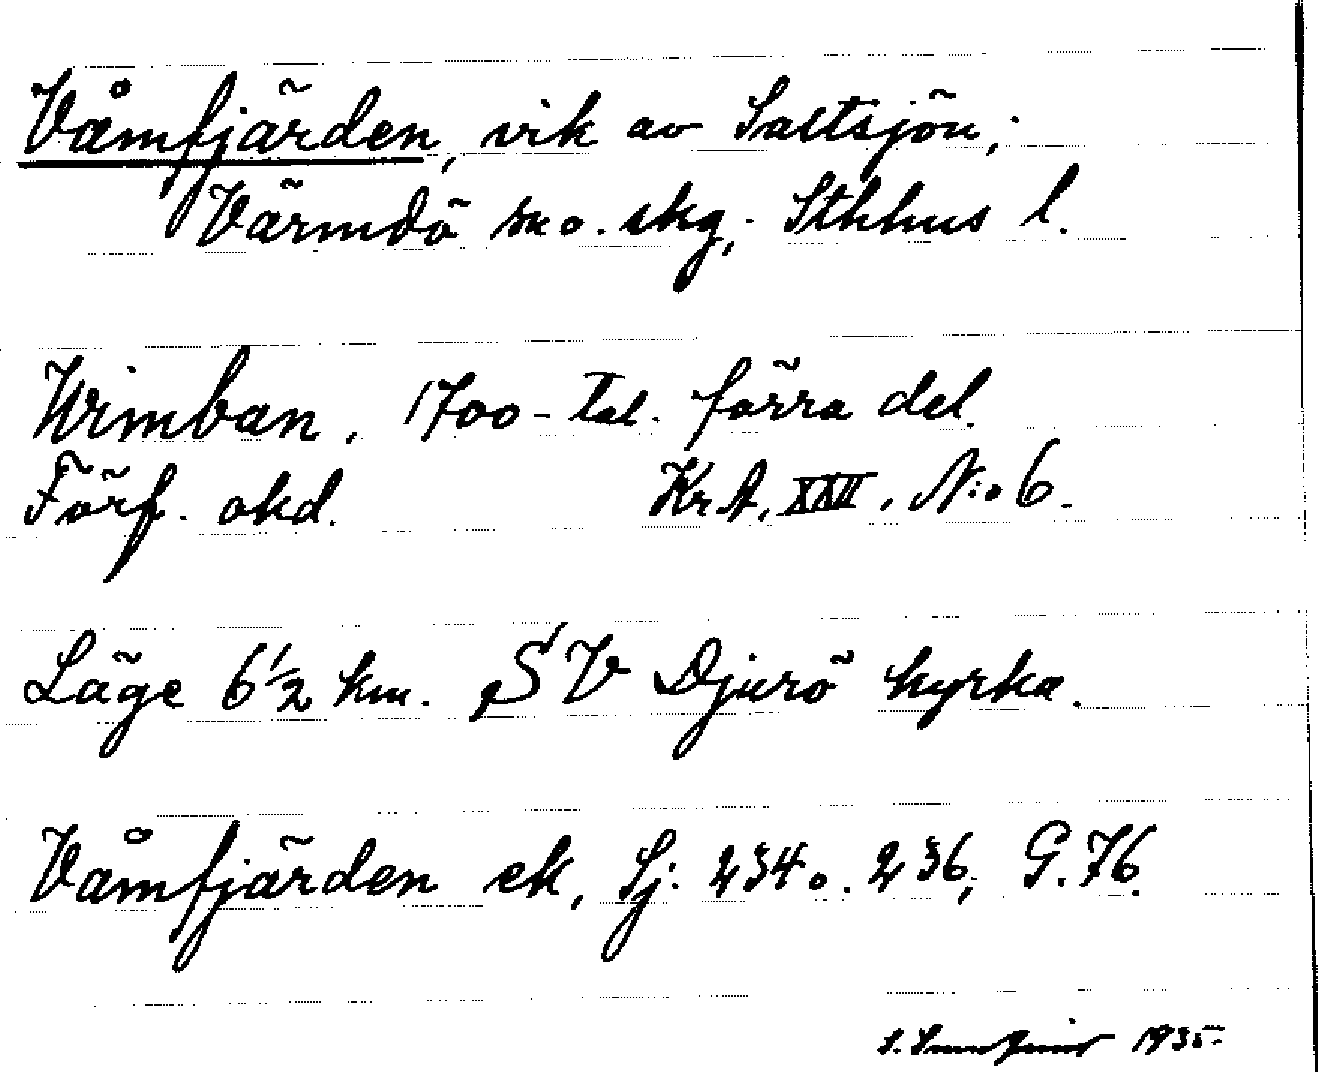 Våmfjärden, vik av Saltsjön;
Värmdö sn o. skg; Sthhus l.
Wimban, 1700-tal. förra del.
Förf. okd. Kr A, XXII, No 6.
Läge 6 1/2 km. SV Djurö kyrka.
Våmfjärden ek, Sj. 234 o. 236, G. 76.
S. 1935.